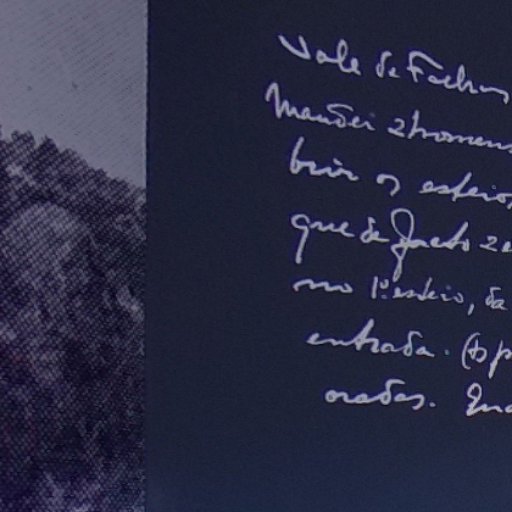 Vale de Fachas
Mandei 2 homens
brir os esteios,
que de facto
no 1º esteio, da
entrada. (as p
oradas.